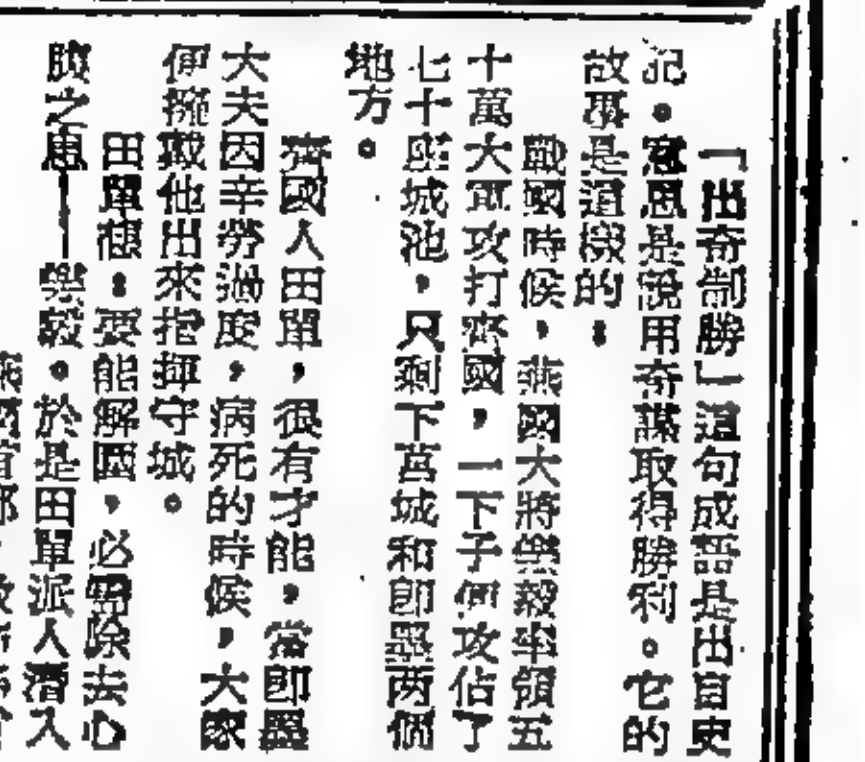 「出奇制勝」這句成語是出自史
記。意思是說用奇謀取得勝利。它的
故事是這樣的：
戰國時候，燕國大將樂毅率領五
十萬大軍攻打齊國，一下子便攻佔了
七十座城池，只剩下莒城和卽墨两個
地方。
齊國人田單，很有才能，當卽墨
大夫因辛勞過度，病死的時候，大家
便擁戴他出來指揮守城。
田單想：要能解圍，必需除去心
腹之患——樂毅。於是田單派人潛入
燕國首都，散布